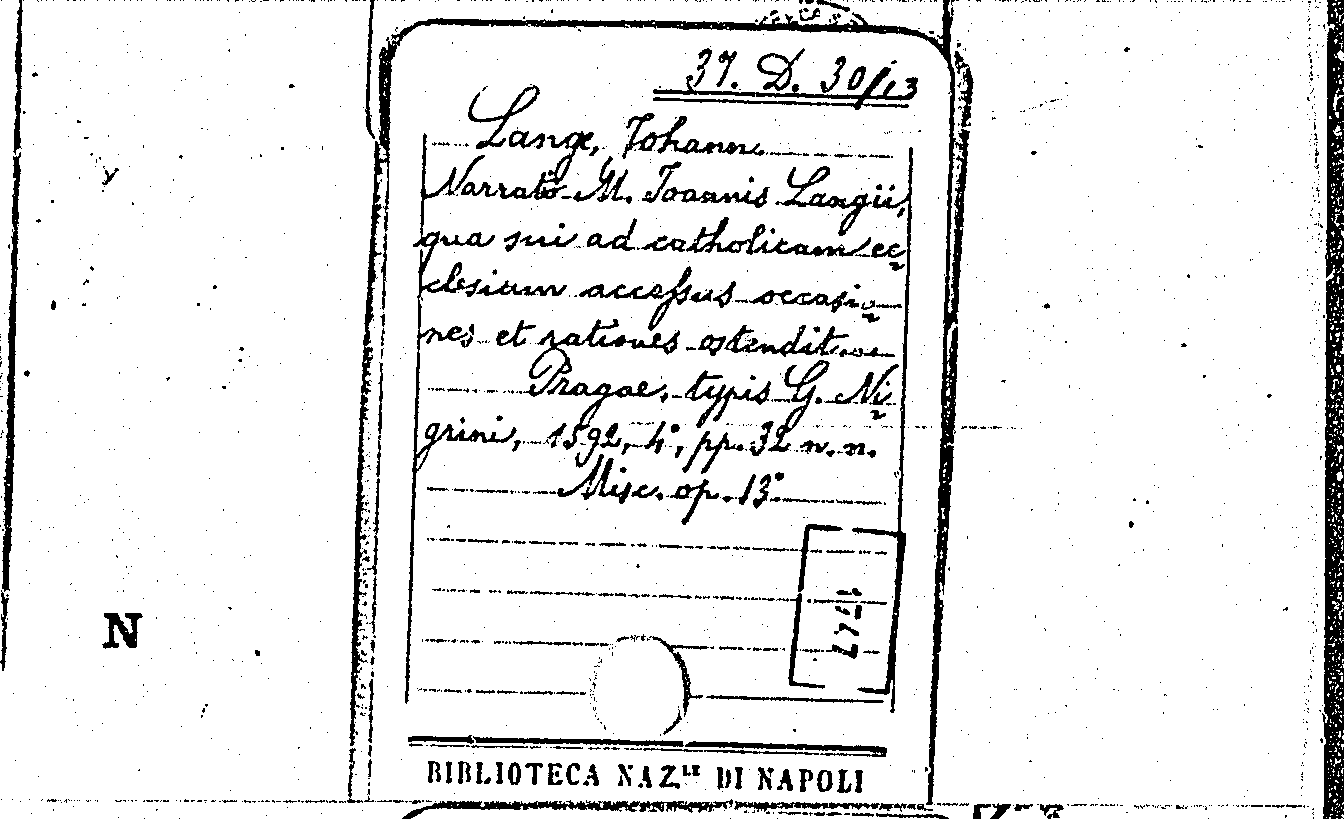 37. D. 30/13
Lange, Johann.
Narratio M. Joannis Langii,
qua sui ad catholicam ec
clesiam accessus occasio
nes et rationes ostendit.
Pragae, typis G. Ni
grini, 1592, 4°, pp. 32 n. n.
Misc. op. 13°
N
BIBLIOTECA NAZ.LE DI NAPOLI